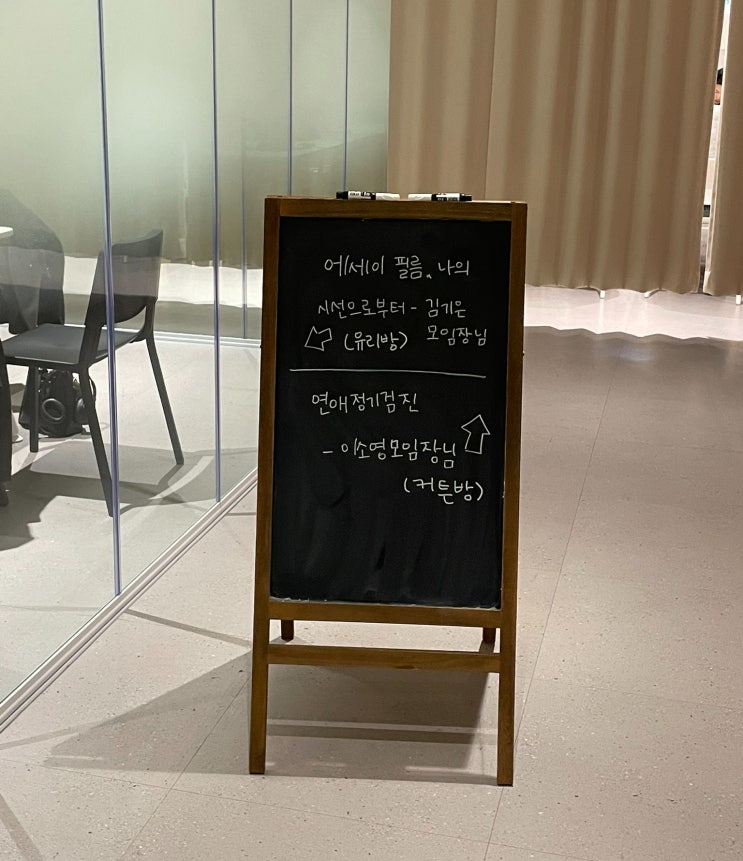 에세이 필름. 나의
시선으로부터 - 김기은
(유리방) 모임장님
연애정기검진
- 이소영모임장님
(커튼방)